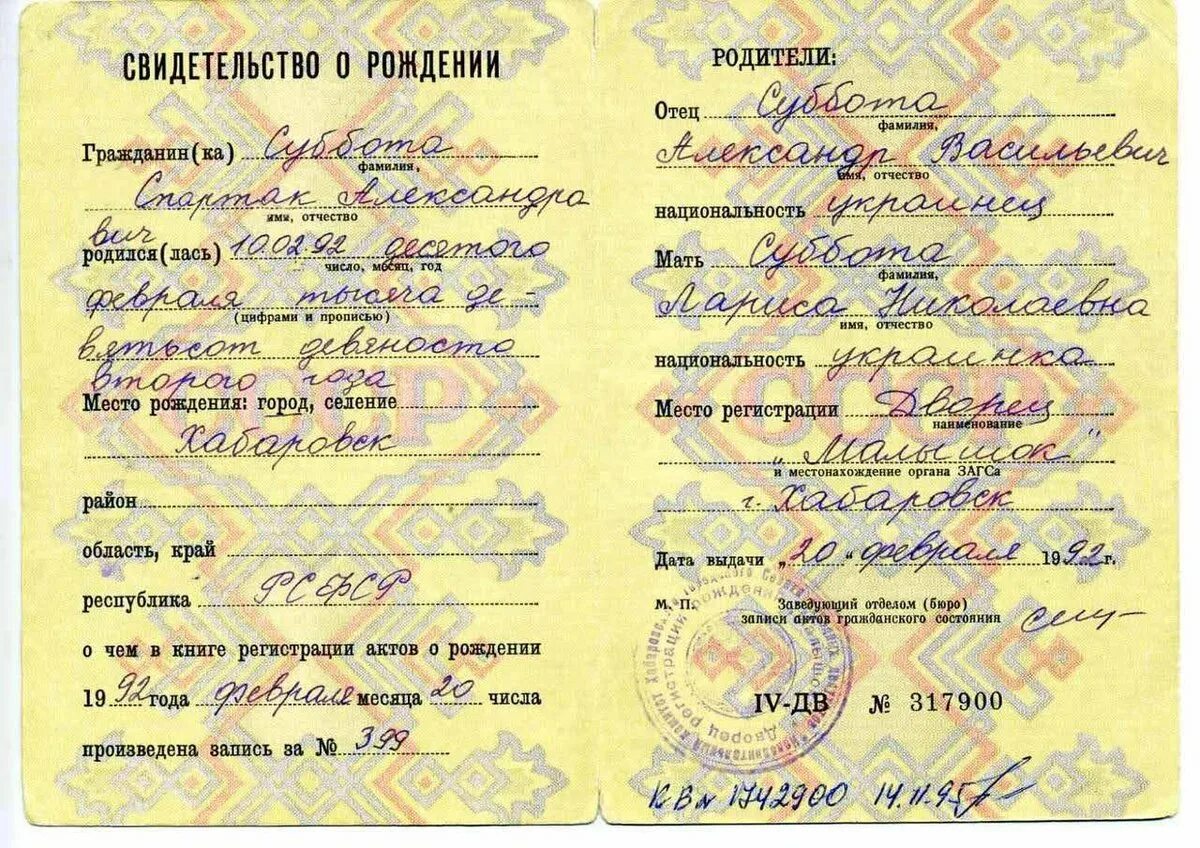 СВИДЕТЕЛЬСТВО О РОЖДЕНИИ
Гражданин(ка) Суббота
фамилия,
Спартак Александра
имя, отчество
вич
родился(лась) 10.02.92 десятого
число, месяц, год
февраля тысяча де-
(цифрами и прописью)
вятьсот девяносто
второго года
Место рождения: город, селение
Хабаровск
район
область, край
республика РСФСР
о чем в книге регистрации актов о рождении
1992 года февраля месяца 20 числа
произведена запись за № 399
СССР
РОДИТЕЛИ:
Отец Суббота
фамилия,
Александр Васильевич
имя, отчество
национальность украинец
Мать Суббота
фамилия,
Лариса Николаевна
имя, отчество
национальность украинка
Место регистрации Дворец
наименование
"Малышок"
и местонахождение органа ЗАГСа
г. Хабаровск
Дата выдачи "20" февраля 1992 г.
М. П. Заведующий отделом (бюро)
записи актов гражданского состояния
IV-ДВ № 317900
КВ № 1742900 14.11.95
СССР